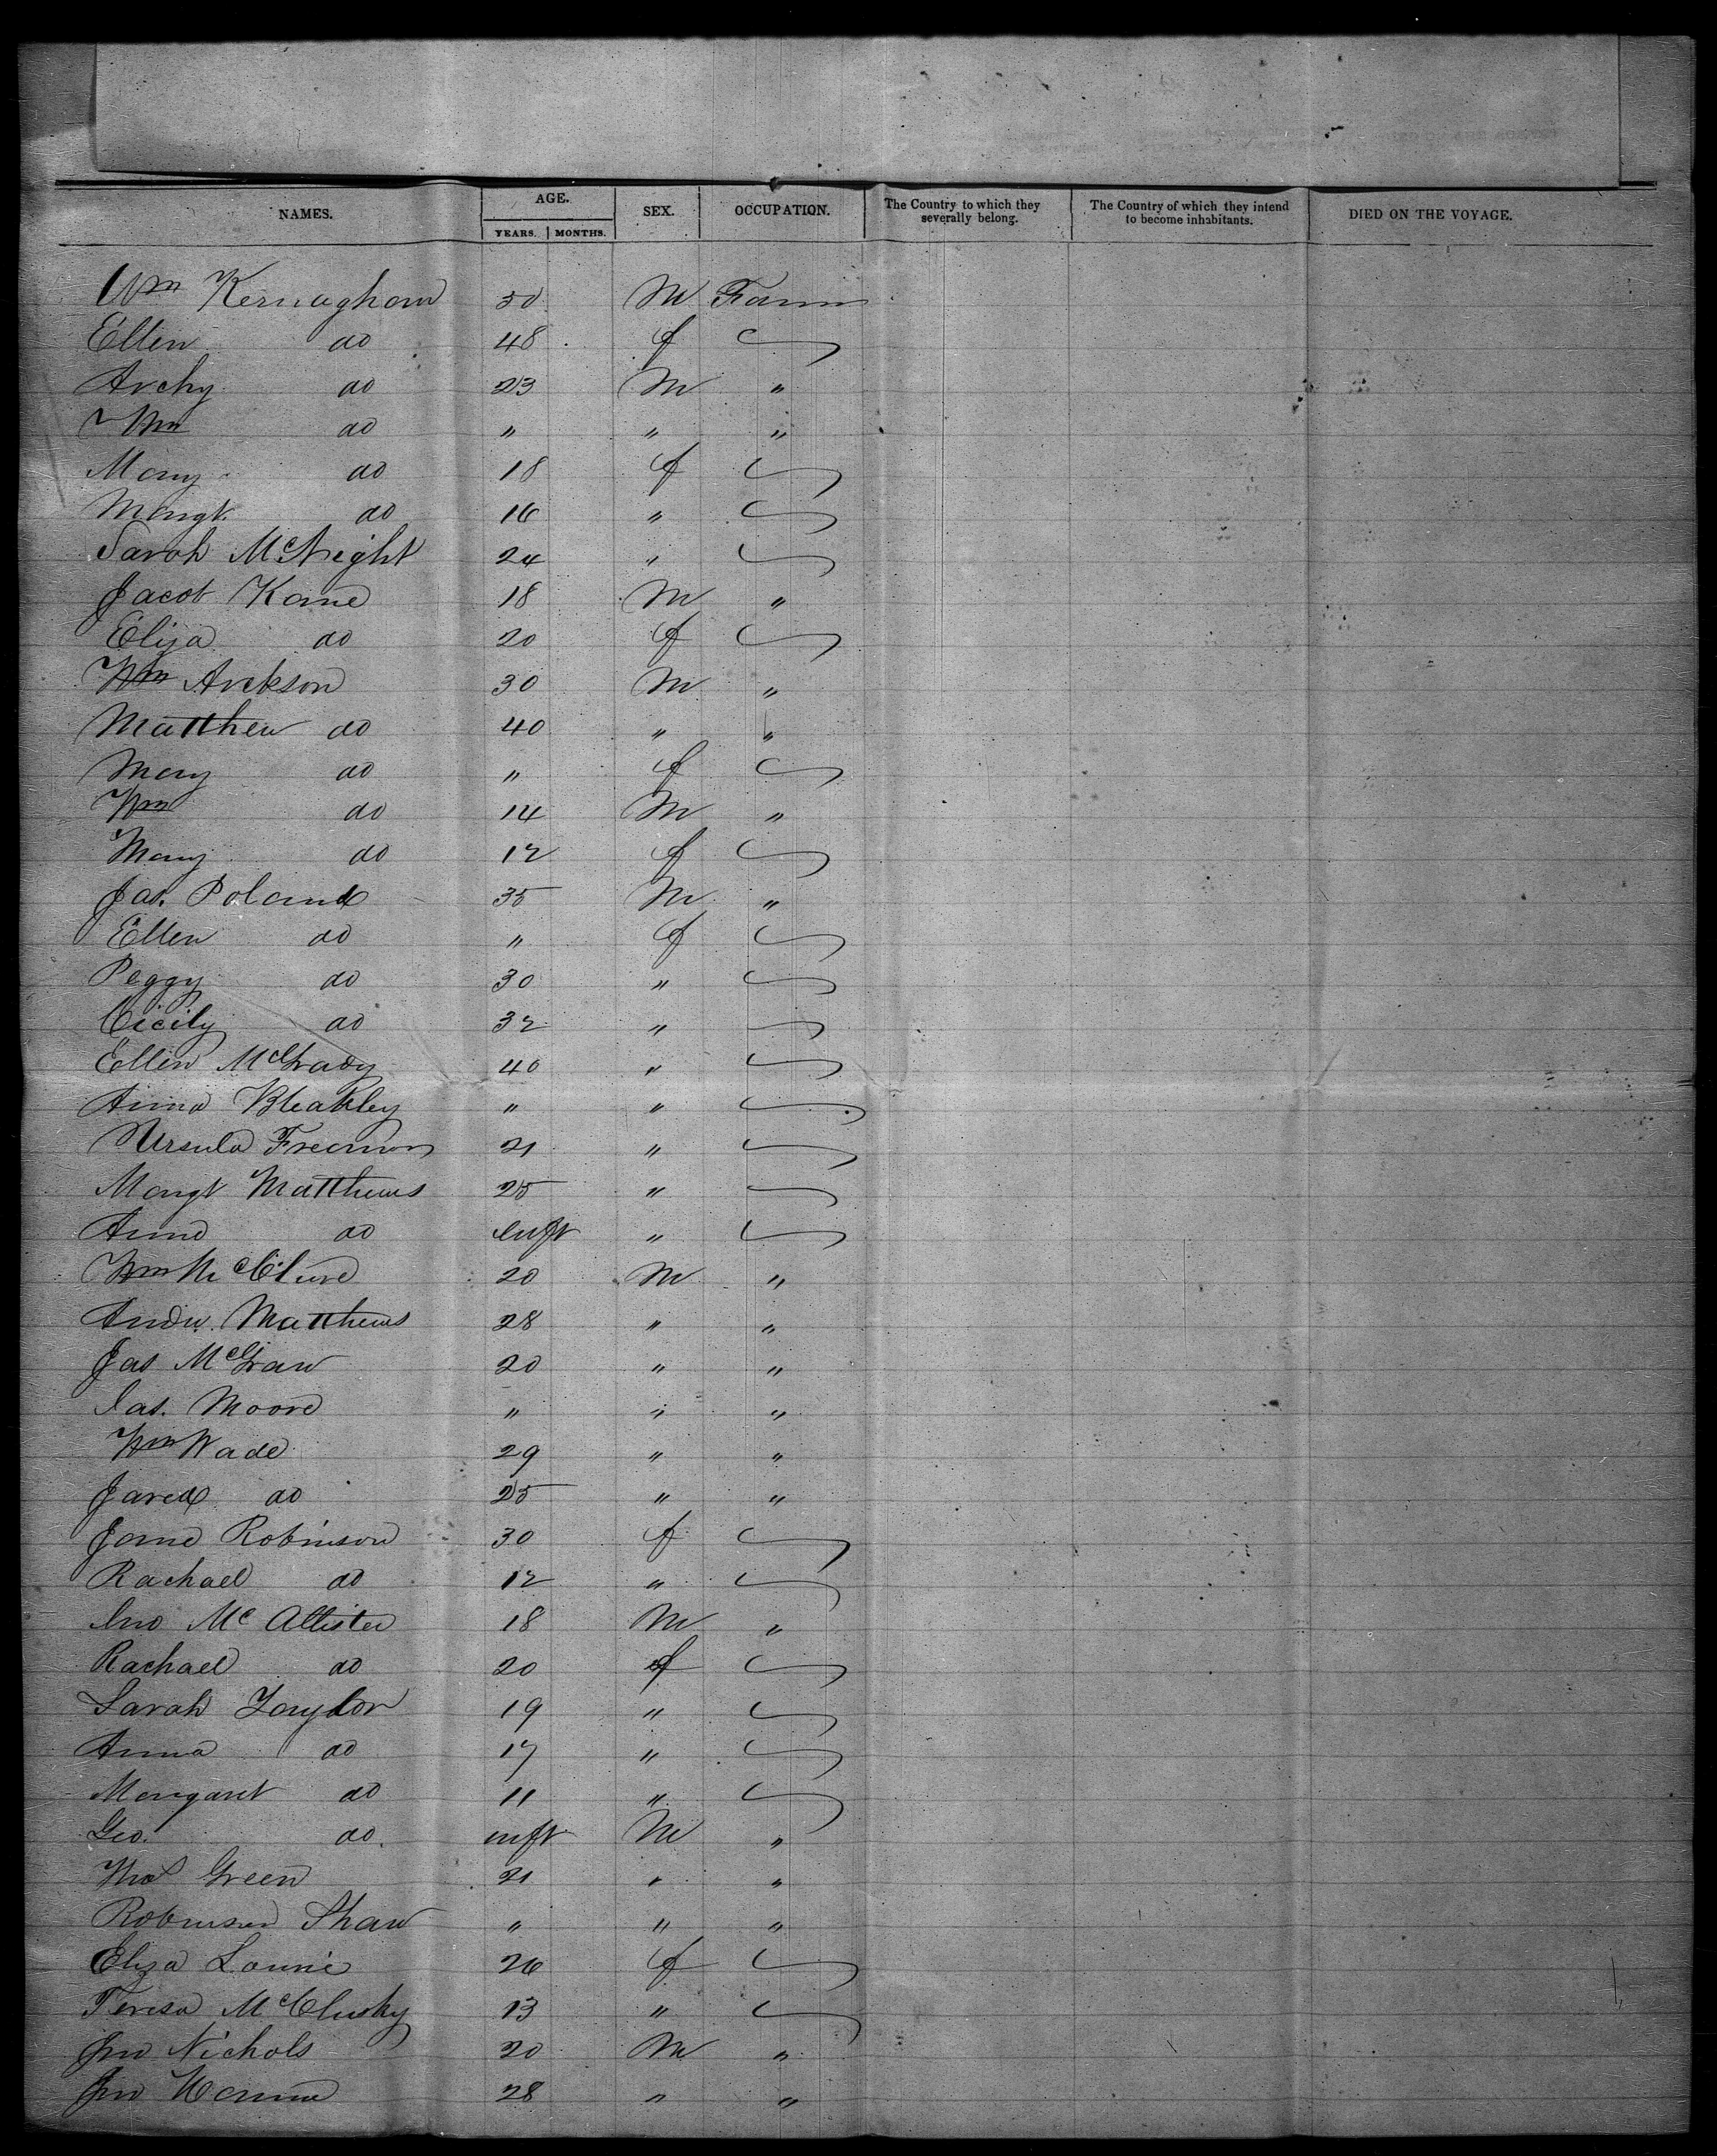 NAMES. AGE. YEARS. MONTHS. SEX. OCCUPATION. The Country to which they severally belong. The Country of which they intend to become inhabitants. DIED ON THE VOYAGE.
Wm Kernaghan 50 M Farmr
Ellen do 48 f
Archy do 23 M "
Wm do " " "
Mary do 18 f
Margt. do 16 "
Sarah McNeight 24 "
Jacob Kane 18 M "
Eliza do 20 f
Wm Arckson 30 M "
Matthew do 40 " "
Mary do " f
Wm do 14 M "
Mary do 12 f
Jas. Poland 35 M "
Ellen do " f
Peggy do 30 "
Cicily do 32 "
Ellen McGrady 40 "
Anna Bleakley " "
Ursula Freeman 21 "
Margt Matthews 25 "
Anna do inft "
Wm McClure 20 M "
Andw. Matthews 28 " "
Jas McGraw 20 " "
Jas. Moore " " "
Wm Wade 29 " "
Jared do 25 " "
Jane Robinson 30 f
Rachael do 12 "
Jno McAllister 18 M "
Rachael do 20 f
Sarah Taylor 19 "
Anna do 17 "
Margaret do 11 "
Geo. do. inft M "
Thos Green 21 " "
Robinson Shaw " " "
Eliza Lowrie 26 f
Teresa McClusky 13 "
Jno Nichols 20 M "
Jno Hanna 28 " "